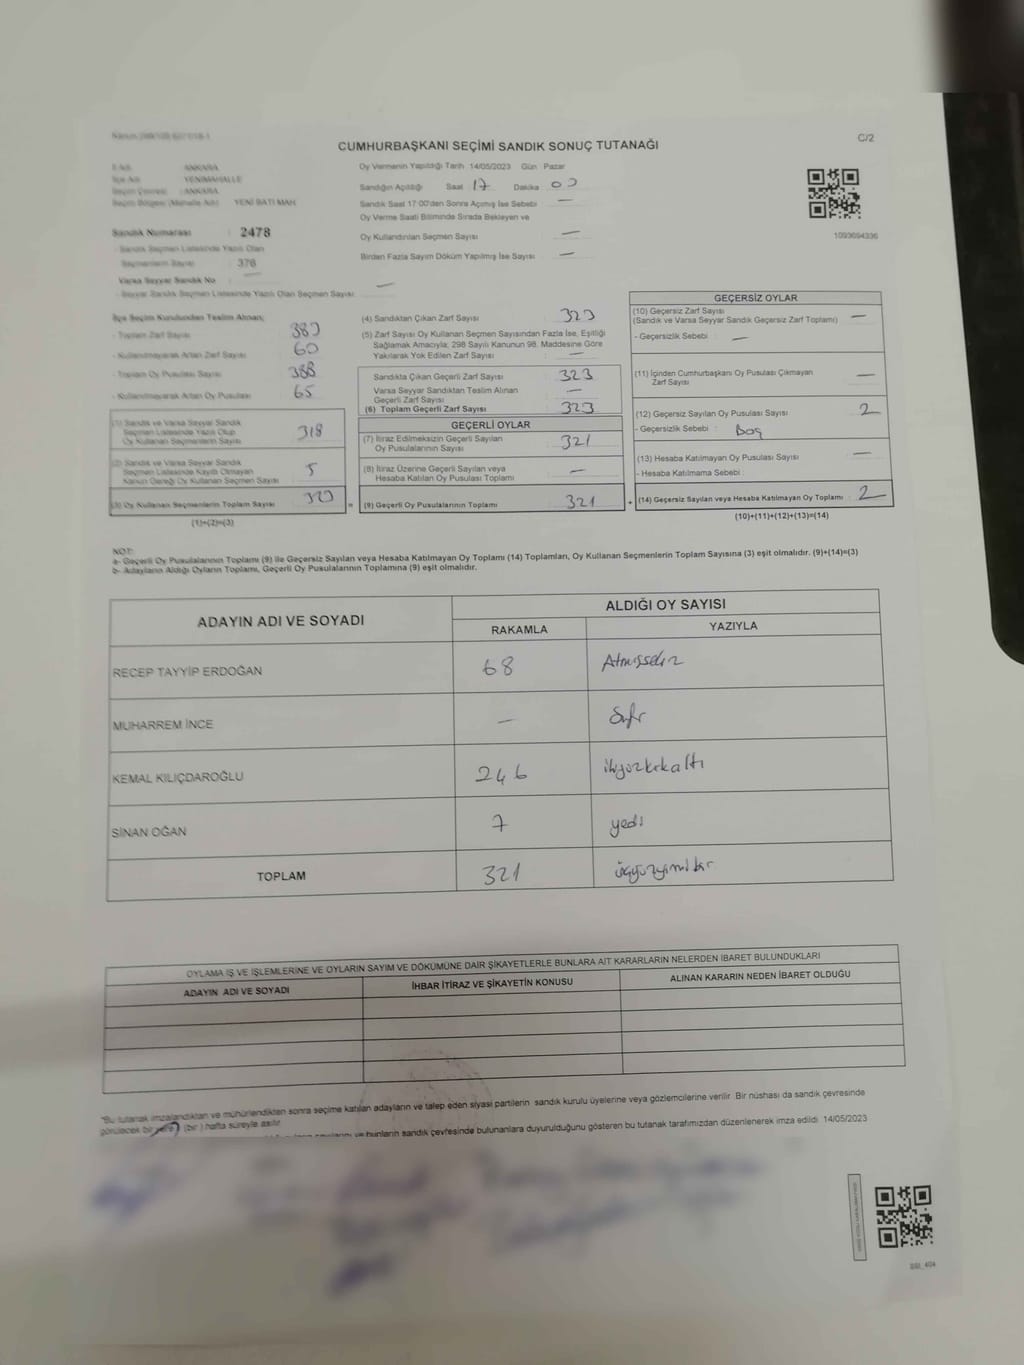 CUMHURBAŞKANI SEÇİMİ SANDIK SONUÇ TUTANAĞI
C/2
ANKARA
YENİMAHALLE
ANKARA
YENİ BATI MAH
Sandık Numarası : 2478
Sandık Seçmen Listesinde Yazılı Olan
Seçmenlerin Sayısı : 376
Varsa Seyyar Sandık No —
- Seyyar Sandık Seçmen Listesinde Yazılı Olan Seçmen Sayısı: —
Oy Vermenin Yapıldığı Tarih 14/05/2023 Gün : Pazar
Sandığın Açılışı Saat 17 Dakika 00
Sandık Saat 17:00'den Sonra Açılmış İse Sebebi —
Oy Verme Saati Bitiminde Sırada Bekleyen ve
Oy Kullandırılan Seçmen Sayısı —
Birden Fazla Sayım Döküm Yapılmış İse Sayısı —
1093694336
İlçe Seçim Kurulundan Teslim Alınan;
- Toplam Zarf Sayısı 383
- Kullanılmayarak Artan Zarf Sayısı 60
- Toplam Oy Pusulası Sayısı 388
- Kullanılmayarak Artan Oy Pusulası 65
(1) Sandık ve Varsa Seyyar Sandık
Seçmen Listesinde Yazılı Olup
Oy Kullanan Seçmenlerin Sayısı 318
(2) Sandık ve Varsa Seyyar Sandık
Seçmen Listesinde Kayıtlı Olmayan
Kanun Gereği Oy Kullanan Seçmen Sayısı 5
(3) Oy Kullanan Seçmenlerin Toplam Sayısı 323
(1)+(2)=(3)
(4) Sandıktan Çıkan Zarf Sayısı : 323
(5) Zarf Sayısı Oy Kullanan Seçmen Sayısından Fazla İse, Eşitliği
Sağlamak Amacıyla; 298 Sayılı Kanunun 98. Maddesine Göre
Yakılarak Yok Edilen Zarf Sayısı : —
Sandıkta Çıkan Geçerli Zarf Sayısı : 323
Varsa Seyyar Sandıktan Teslim Alınan
Geçerli Zarf Sayısı : —
(6) Toplam Geçerli Zarf Sayısı : 323
GEÇERLİ OYLAR
(7) İtiraz Edilmeksizin Geçerli Sayılan
Oy Pusulalarının Sayısı : 321
(8) İtiraz Üzerine Geçerli Sayılan veya
Hesaba Katılan Oy Pusulası Toplamı : —
= (9) Geçerli Oy Pusulalarının Toplamı : 321
GEÇERSİZ OYLAR
(10) Geçersiz Zarf Sayısı
(Sandık ve Varsa Seyyar Sandık Geçersiz Zarf Toplamı) : —
- Geçersizlik Sebebi : —
(11) İçinden Cumhurbaşkanı Oy Pusulası Çıkmayan
Zarf Sayısı —
(12) Geçersiz Sayılan Oy Pusulası Sayısı : 2
- Geçersizlik Sebebi : Boş
(13) Hesaba Katılmayan Oy Pusulası Sayısı : —
- Hesaba Katılmama Sebebi :
+ (14) Geçersiz Sayılan veya Hesaba Katılmayan Oy Toplamı : 2
(10)+(11)+(12)+(13)=(14)
NOT:
a- Geçerli Oy Pusulalarının Toplamı (9) ile Geçersiz Sayılan veya Hesaba Katılmayan Oy Toplamı (14) Toplamları, Oy Kullanan Seçmenlerin Toplam Sayısına (3) eşit olmalıdır. (9)+(14)=(3)
b- Adayların Aldığı Oyların Toplamı, Geçerli Oy Pusulalarının Toplamına (9) eşit olmalıdır.
ADAYIN ADI VE SOYADI
ALDIĞI OY SAYISI
RAKAMLA YAZIYLA
RECEP TAYYİP ERDOĞAN 68 Atmışsekiz
MUHARREM İNCE — Sıfır
KEMAL KILIÇDAROĞLU 246 ikiyüzkırkaltı
SİNAN OĞAN 7 yedi
TOPLAM 321 üçyüzyirmibir
OYLAMA İŞ VE İŞLEMLERİNE VE OYLARIN SAYIM VE DÖKÜMÜNE DAİR ŞİKAYETLERLE BUNLARA AİT KARARLARIN NELERDEN İBARET BULUNDUKLARI
ADAYIN ADI VE SOYADI İHBAR İTİRAZ VE ŞİKAYETİN KONUSU ALINAN KARARIN NEDEN İBARET OLDUĞU
"Bu tutanak imzalandıktan ve mühürlendikten sonra seçime katılan adayların ve talep eden siyasi partilerin sandık kurulu üyelerine veya gözlemcilerine verilir. Bir nüshası da sandık çevresinde
görülecek bir yere (bir) hafta süreyle asılır.
ve bunların sandık çevresinde bulunanlara duyurulduğunu gösteren bu tutanak tarafımızdan düzenlenerek imza edildi. 14/05/2023